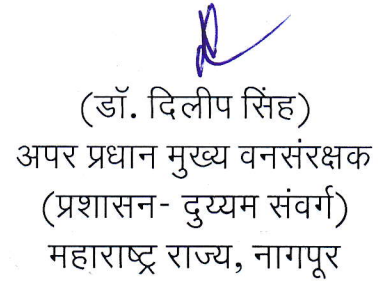 (डॉ. दिलीप सिंह)
अपर प्रधान मुख्य वनसंरक्षक
(प्रशासन- दुय्यम संवर्ग)
महाराष्ट्र राज्य, नागपूर